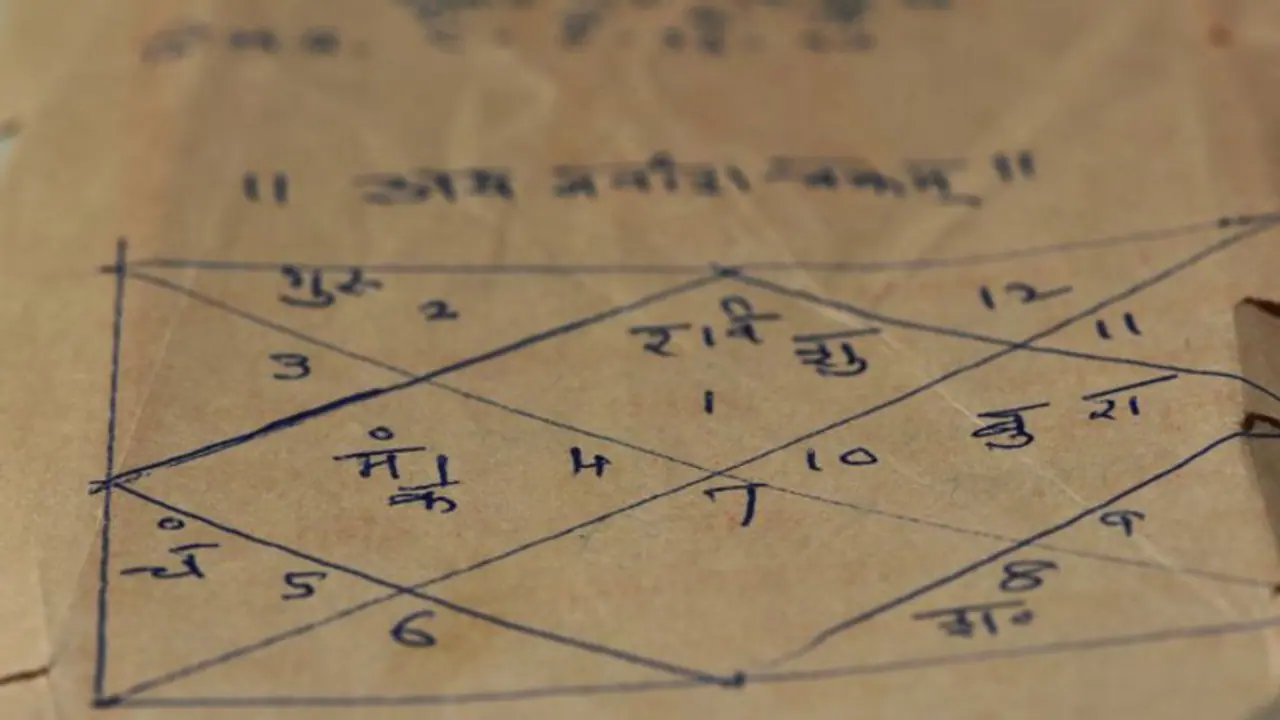 ॥ अथ नवांश चक्रम् ॥
गुरु 2
रवि शु
12
11
3
1
बु रा
मं के
4
10
7
चं
5
6
9
8
श०